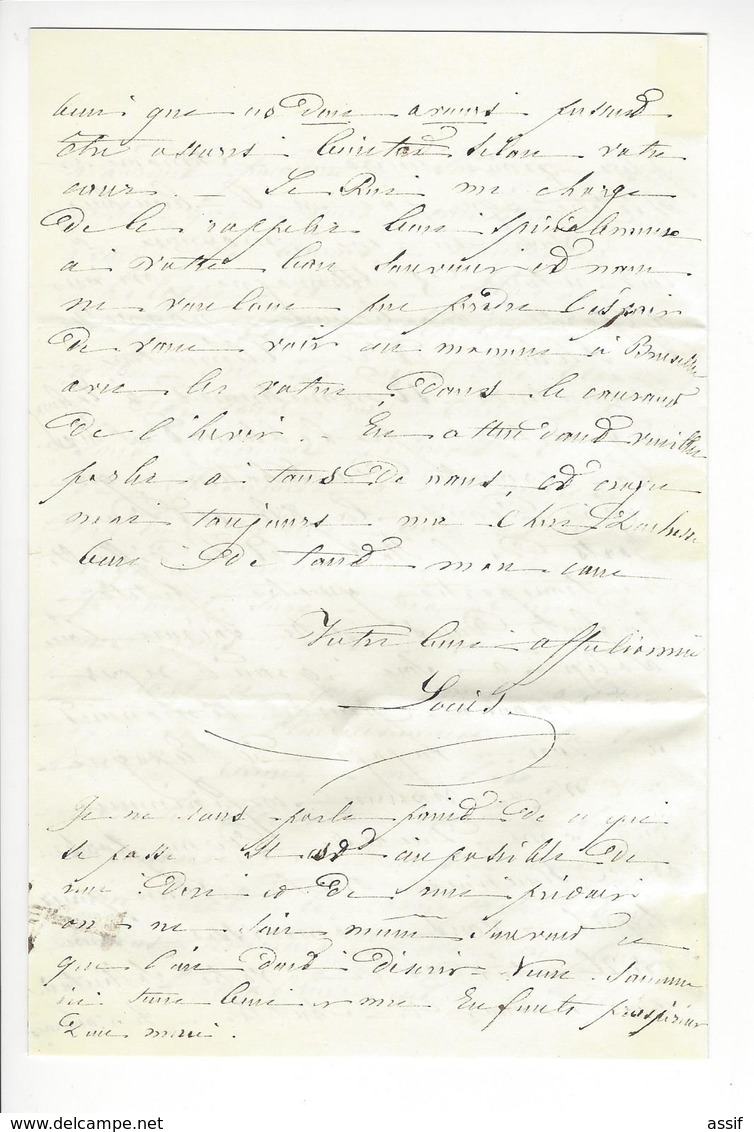 bien que ns deux avons puissent
être assuré bientôt selon votre
cœur. – Le Roi me charge
de le rappeler bien spécialement
à votre bon souvenir et nous
ne voulons pas perdre l'espoir
de vous voir au moins à Bruxelles
avec les vôtres dans le courant
de l'hiver. – En attendant veuillez
parler à tous de nous, et croyez
moi toujours mon cher
bien de tout mon cœur
Votre bien affectionnée
Louise
Je ne vous parle point de ce qui
se passe. Il est impossible de
rien dire et de rien prévoir
on ne sait même souvent ce
que l'on doit désirer. Nous sommes
ici tous bien et mes Enfants prospèrent
Dieu merci.
assif